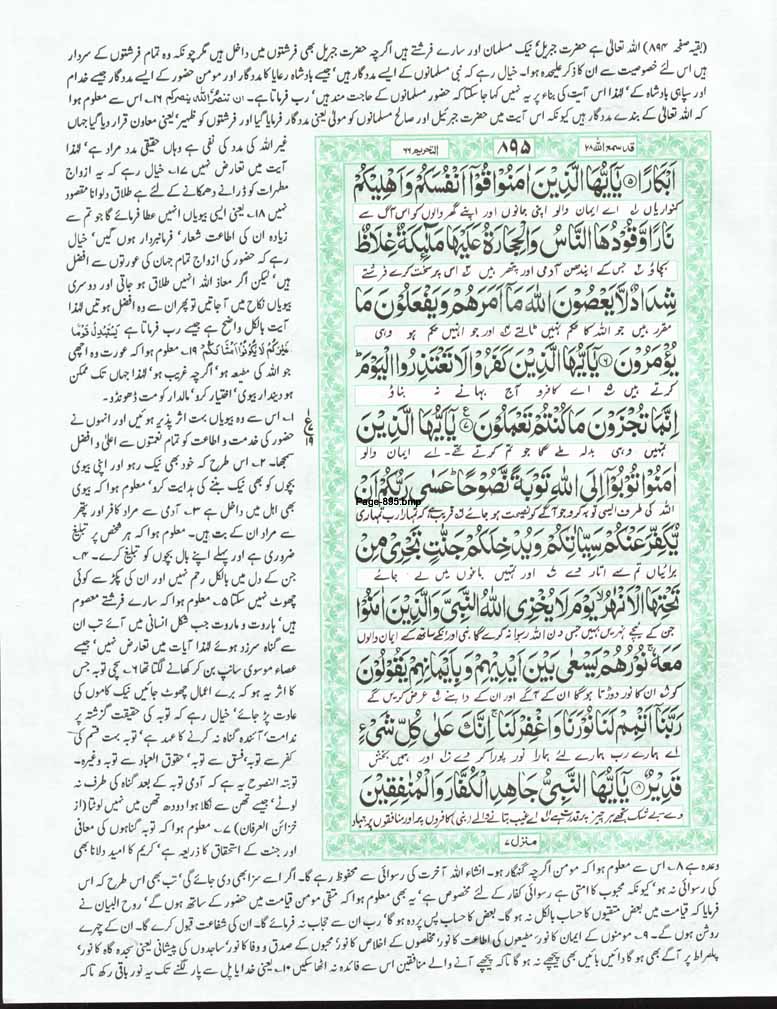 (بقیہ صفحہ ۸۹۴) اللہ تعالیٰ ہے حضرت جبریل نیک مسلمان اور سارے فرشتے ہیں اگرچہ حضرت جبریل بھی فرشتوں میں داخل ہیں مگر چونکہ وہ تمام فرشتوں کے سردار
ہیں اس لئے خصوصیت سے ان کا ذکر علیحدہ ہوا۔ خیال رہے کہ نبی مسلمانوں کے ایسے مددگار ہیں جیسے بادشاہ رعایا کا مددگار اور مومن حضور کے ایسے مددگار جیسے خدام
اور سپاہی بادشاہ کے' لہذا اس آیت کی بناء پر یہ نہیں کہا جا سکتا کہ حضور مسلمانوں کے حاجت مند ہیں' رب فرماتا ہے۔ ان تنصروا اللہ ینصرکم ۱۶۔ اس سے معلوم ہوا
کہ اللہ تعالیٰ کے بندے مددگار ہیں کیونکہ اس آیت میں حضرت جبرئیل اور صالح مسلمانوں کو مولیٰ یعنی مددگار فرمایا گیا اور فرشتوں کو ظہیر' یعنی معاون قرار دیا گیا جہاں
قد سمع اللہ ۲۸
۸۹۵
التحریم ۶۶
اَبْكَارًا ۵ يٰۤاَيُّهَا الَّذِيْنَ اٰمَنُوْا قُوْۤا اَنْفُسَكُمْ وَاَهْلِيْكُمْ
کنواریاں اے ایمان والو اپنی جانوں اور اپنے گھر والوں کو اس آگ سے
نَارًا وَّقُوْدُهَا النَّاسُ وَالْحِجَارَةُ عَلَيْهَا مَلٰٓئِكَةٌ غِلَاظٌ
بچاؤ جس کے ایندھن آدمی اور پتھر ہیں اس پر سخت کرے فرشتے
شِدَادٌ لَّا يَعْصُوْنَ اللّٰهَ مَاۤ اَمَرَهُمْ وَيَفْعَلُوْنَ مَا
مقرر ہیں جو اللہ کا حکم نہیں ٹالتے اور جو انہیں حکم ہو وہی
يُؤْمَرُوْنَ ۶ يٰۤاَيُّهَا الَّذِيْنَ كَفَرُوْا لَا تَعْتَذِرُوا الْيَوْمَ
کرتے ہیں اے کافرو آج بہانے نہ بناؤ
اِنَّمَا تُجْزَوْنَ مَا كُنْتُمْ تَعْمَلُوْنَ ۷ يٰۤاَيُّهَا الَّذِيْنَ
تمہیں وہی بدلہ ملے گا جو تم کرتے تھے۔ اے ایمان والو
اٰمَنُوْا تُوْبُوْۤا اِلَى اللّٰهِ تَوْبَةً نَّصُوْحًا عَسٰى رَبُّكُمْ اَنْ
Page-895.bmp
اللہ کی طرف ایسی توبہ کرو جو آگے کو نصیحت ہو جائے قریب ہے کہ تمہارا رب تمہاری
يُّكَفِّرَ عَنْكُمْ سَيِّاٰتِكُمْ وَيُدْخِلَكُمْ جَنّٰتٍ تَجْرِيْ مِنْ
برائیاں تم سے اتار دے اور تمہیں باغوں میں لے جائے
تَحْتِهَا الْاَنْهٰرُ يَوْمَ لَا يُخْزِى اللّٰهُ النَّبِيَّ وَالَّذِيْنَ اٰمَنُوْا
جن کے نیچے نہریں بہیں جس دن اللہ رسوا نہ کرے گا نبی اور انکے ساتھ کے ایمان والوں
مَعَهٗ نُوْرُهُمْ يَسْعٰى بَيْنَ اَيْدِيْهِمْ وَبِاَيْمَانِهِمْ يَقُوْلُوْنَ
کو ان کا نور دوڑتا ہوگا ان کے آگے اور ان کے داہنے عرض کریں گے
رَبَّنَاۤ اَتْمِمْ لَنَا نُوْرَنَا وَاغْفِرْ لَنَا اِنَّكَ عَلٰى كُلِّ شَيْءٍ
اے ہمارے رب ہمارے لئے ہمارا نور پورا کر دے اور ہمیں بخش
قَدِيْرٌ ۸ يٰۤاَيُّهَا النَّبِيُّ جَاهِدِ الْكُفَّارَ وَالْمُنٰفِقِيْنَ
دے بے شک تجھے ہر چیز پر قدرت ہے اے غیب بتانے والے (نبی) کافروں پر اور منافقوں پر جہاد
منزل ۷
ع
۱۹
غیر اللہ کی مدد کی نفی ہے وہاں حقیقی مدد مراد ہے' لہذا
آیت میں تعارض نہیں ۱۷۔ خیال رہے کہ یہ ازواج
مطہرات کو ڈرانے دھمکانے کے لئے ہے طلاق دلوانا مقصود
نہیں ۱۸۔ یعنی ایسی بیویاں انہیں عطا فرمائے گا جو تم سے
زیادہ ان کی اطاعت شعار' فرمانبردار ہوں گیں' خیال
رہے کہ حضور کی ازواج تمام جہان کی عورتوں سے افضل
ہیں' لیکن اگر معاذ اللہ انہیں طلاق ہو جاتی اور دوسری
بیویاں نکاح میں آ جاتیں تو پھر ان سے وہ افضل ہوتیں لہذا
آیت بالکل واضح ہے جیسے رب فرماتا ہے یستبدل قوما
غیرکم ثم لا یکونوا امثالکم ۱۹۔ معلوم ہوا کہ عورت وہ اچھی
جو اللہ کی مطیعہ ہو' اگرچہ غریب ہو' لہذا جہاں تک ممکن
ہو دیندار بیوی' اختیار کرو' مالدار کو مت ڈھونڈو۔
۱۔ اس سے وہ بیویاں بہت اثر پذیر ہوئیں اور انہوں نے
حضور کی خدمت و اطاعت کو تمام نعمتوں سے اعلیٰ و افضل
سمجھا۔ ۲۔ اس طرح کہ خود بھی نیک رہو اور اپنی بیوی
بچوں کو بھی نیک بننے کی ہدایت کرو' معلوم ہوا کہ بیوی
بھی اہل میں داخل ہے ۳۔ آدمی سے مراد کافر اور پتھر
سے مراد ان کے بت ہیں۔ معلوم ہوا کہ ہر شخص پر تبلیغ
ضروری ہے اور پہلے اپنے بال بچوں کو تبلیغ کرے۔ ۴۔
جن کے دل میں بالکل رحم نہیں اور ان کی پکڑ سے کوئی
چھوٹ نہیں سکتا ۵۔ معلوم ہوا کہ سارے فرشتے معصوم
ہیں' ہاروت و ماروت جب شکل انسانی میں آئے تب ان
سے گناہ سرزد ہوئے لہذا آیات میں تعارض نہیں' جیسے
عصاء موسوی سانپ بن کر کھانے لگتا تھا ۶۔ سچی توبہ جس
کا اثر یہ ہو کہ برے اعمال چھوٹ جائیں نیک کاموں کی
عادت پڑ جائے' خیال رہے کہ توبہ کی حقیقت گزشتہ پر
ندامت' آئندہ گناہ نہ کرنے کا عہد ہے' توبہ بہت قسم کی
کفر سے توبہ' فسق سے توبہ' حقوق العباد سے توبہ وغیرہ۔
توبتہ النصوح یہ ہے کہ آدمی توبہ کے بعد گناہ کی طرف نہ
لوٹے' جیسے تھن سے نکلا ہوا دودھ تھن میں نہیں لوٹتا (از
خزائن العرفان) ۷۔ معلوم ہوا کہ توبہ گناہوں کی معافی
اور جنت کے استحقاق کا ذریعہ ہے' کریم کا امید دلانا بھی
وعدہ ہے ۸۔ اس سے معلوم ہوا کہ مومن اگرچہ گنہگار ہو۔ انشاء اللہ آخرت کی رسوائی سے محفوظ رہے گا۔ اگر اسے سزا بھی دی جائے گی' تب بھی اس طرح کہ اس
کی رسوائی نہ ہو' کیونکہ محبوب کا امتی ہے رسوائی کفار کے لئے مخصوص ہے' یہ بھی معلوم ہوا کہ متقی مومن قیامت میں حضور کے ساتھ ہوں گے' روح البیان نے
فرمایا کہ قیامت میں بعض متقیوں کا حساب بالکل نہ ہو گا۔ بعض کا حساب پس پردہ ہو گا' رب ان سے حجاب نہ فرمائے گا۔ ان کی شفاعت قبول کرے گا۔ ان کے چہرے
روشن ہوں گے۔ ۹۔ مومنوں کے ایمان کا نور' مطیعوں کی اطاعت کا نور' مخلصوں کے اخلاص کا نور' محبوں کے صدق و وفا کا نور' ساجدوں کی پیشانی یعنی سجدہ گاہ کا نور'
پلصراط پر آگے بھی ہو گا دائیں بائیں بھی پیچھے نہ ہو گا تاکہ پیچھے آنے والے منافقین اس سے فائدہ نہ اٹھا سکیں ۱۰۔ یعنی خدایا پل سے پار لگنے تک یہ نور باقی رکھ تاکہ